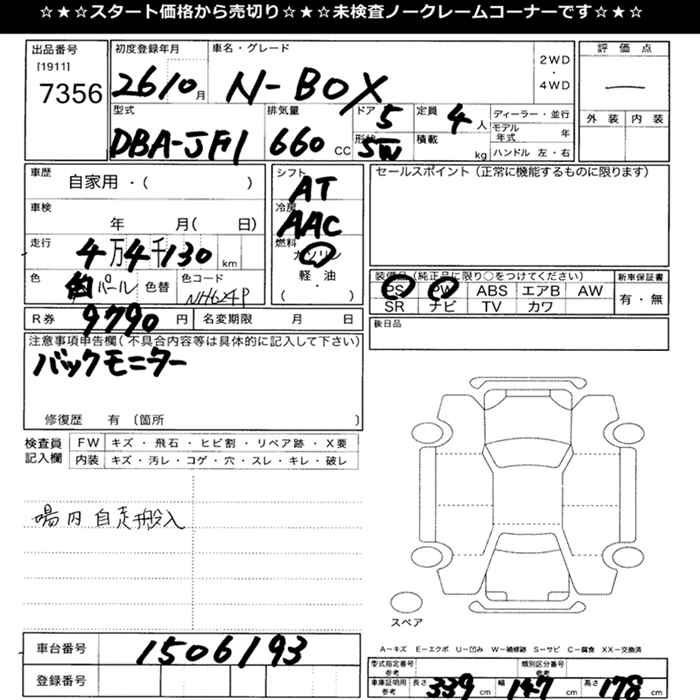 ☆★☆★スタート価格から売切り☆★☆★未検査ノークレームコーナーです☆★☆★
出品番号 初度登録年月 車名・グレード 2WD・4WD 評価点
[1911]
7356 26 10月 N-BOX —
型式 排気量 ドア 5 定員 4人 ディーラー・並行 外装 内装
DBA-JF1 660 CC 形状 5W 積載 kg モデル年式 年
ハンドル 左・右
車歴 自家用・( ) シフト AT セールスポイント(正常に機能するものに限ります)
車検 年 月( 日) 冷房 AAC
走行 4万4千130km 燃料 ガソリン
軽・油
( )
色 パール 色替 色コード NH624P
装備品(純正品に限り○をつけてください) 新車保証書
PS PW ABS エアB AW 有・無
SR ナビ TV カワ
R券 9790円 名変期限 月 日 後日品
注意事項申告欄(不具合内容等は具体的に記入して下さい)
バックモニター
修復歴 有 (箇所 )
検査員記入欄 FW キズ・飛石・ヒビ割・リペア跡・X要
内装 キズ・汚レ・コゲ・穴・スレ・キレ・破レ
場内自走搬入
スペア
車台番号 1506193
登録番号
A−キズ E−エクボ U−凹み W−補修跡 S−サビ C−腐食 XX−交換済
型式指定番号 参考 類別区分番号 参考
車庫証明用 参考 長さ 339cm 幅 147cm 高さ 178cm